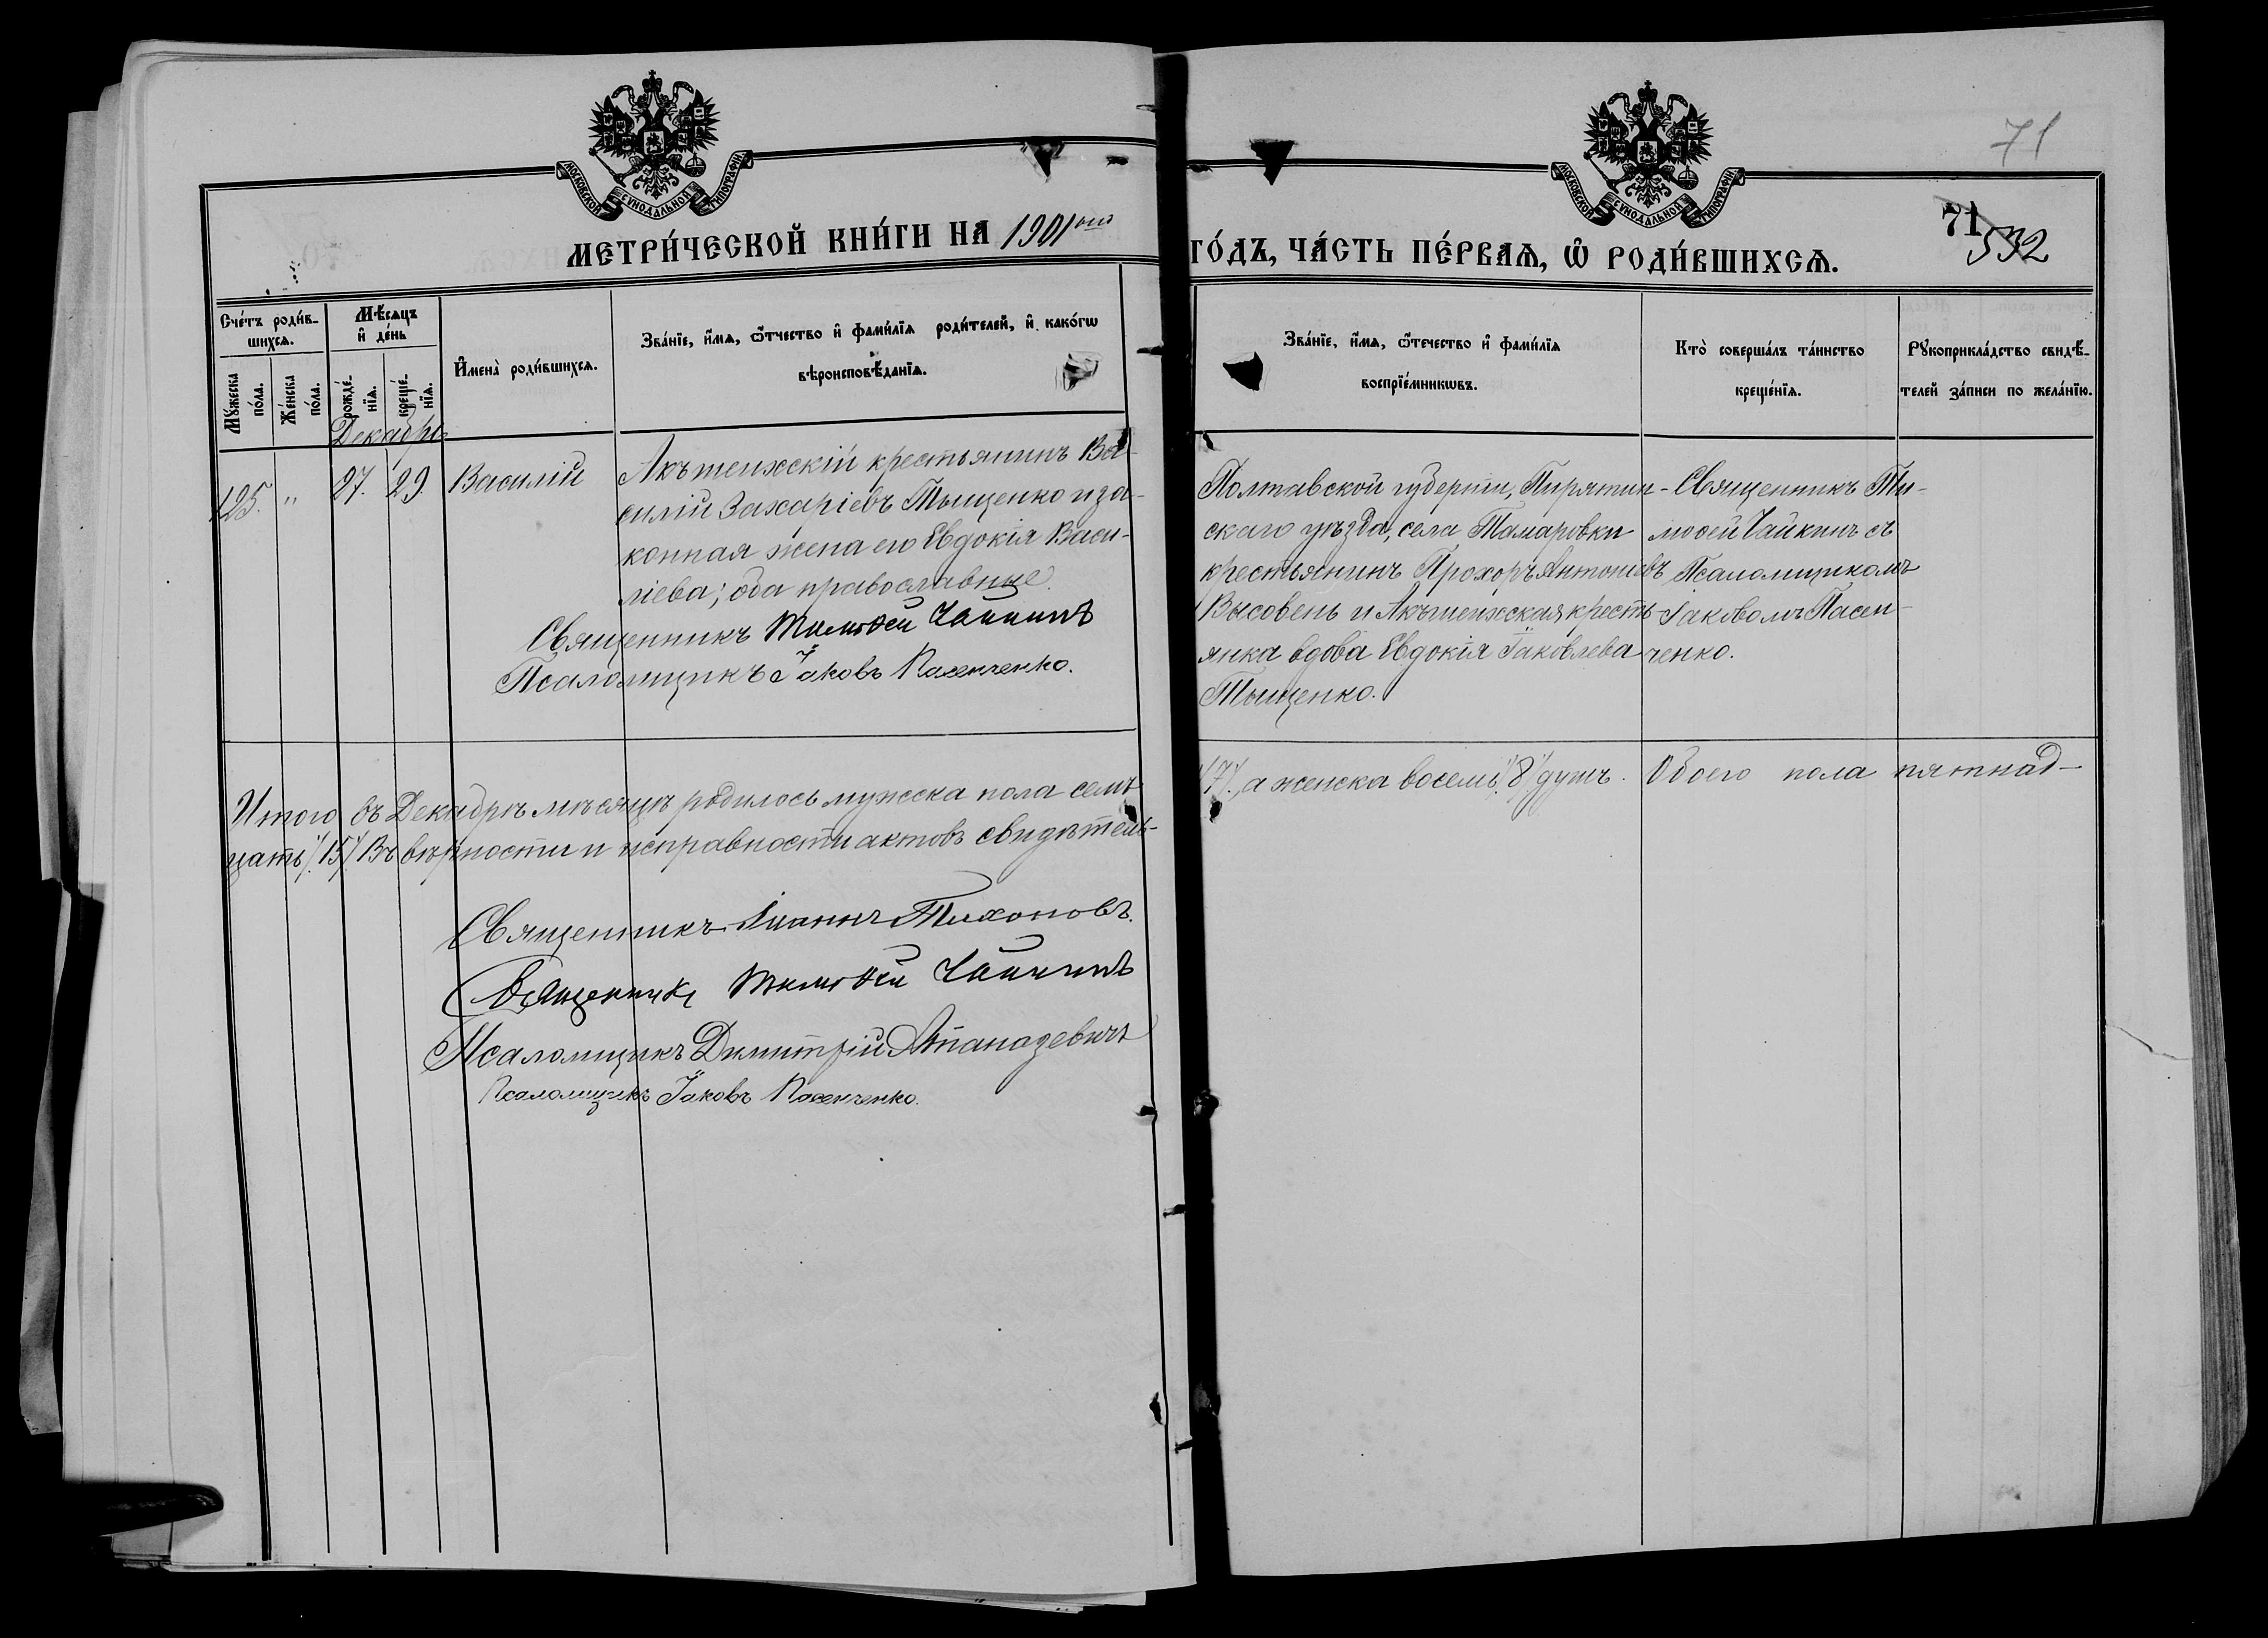 МОСКОВСКОЙ СУНОДАЛЬНОЙ ТИПОГРАФІИ
МОСКОВСКОЙ СУНОДАЛЬНОЙ ТИПОГРАФІИ
71
МЕТРИ́ЧЕСКОЙ КНИ́ГИ НА 1901ый ГО́ДЪ, ЧА́СТЬ ПЕ́РВАѦ, Ѡ РОДИ́ВШИХСѦ.
71
532
Сче́тъ роди́в-
шихсѧ.
Мѣ́сѧцъ
и҆ де́нь
Мꙋ́жеска
по́ла.
Же́нска
по́ла.
рожде́-
нїѧ.
креще́-
нїѧ.
И҆мена̀ роди́вшихсѧ.
Зва́нїе, и҆́мѧ, ѻ҆́тчество и҆ фами́лїѧ роди́телей, и҆ како́гѡ
вѣроисповѣ́данїѧ.
Зва́нїе, и҆́мѧ, ѻ҆́течество и҆ фами́лїѧ
воспрїе́мникѡвъ.
Кто̀ соверша́лъ та́инство
креще́нїѧ.
Рꙋкоприкла́дство свидѣ́-
телей за́писи по жела́нїю.
Декабрь
125. " 27. 29. Василій
Акъшенжскій крестьянинъ Ва-
силій Захаріевъ Тыщенко и за-
конная жена его Евдокія Васи-
ліева; оба православные.
Священникъ Тимоѳей Чайкинъ
Псаломщикъ Іаковъ Пасенченко.
Полтавской губерніи, Пирятин-
скаго уѣзда, села Тамаровки
крестьянинъ Прохоръ Антоніевъ
Высовень и Акъшенжская кресть-
янка вдова Евдокія Іаковлева
Тыщенко.
Священникъ Ти-
моѳей Чайкинъ съ
Псаломщикомъ
Іаковомъ Пасен-
ченко.
Итого въ Декабрѣ мѣсяцѣ родилось мужеска пола семь /7/, а женска восемь /8/ душъ. Обоего пола пятнад-
цать /15/. Въ вѣрности и исправности актовъ свидѣтель-
Священникъ Іоаннъ Тихоновъ.
Священникъ Тимоѳей Чайкинъ
Псаломщикъ Димитрій Атаназевичъ
Псаломщикъ Іаковъ Пасенченко.